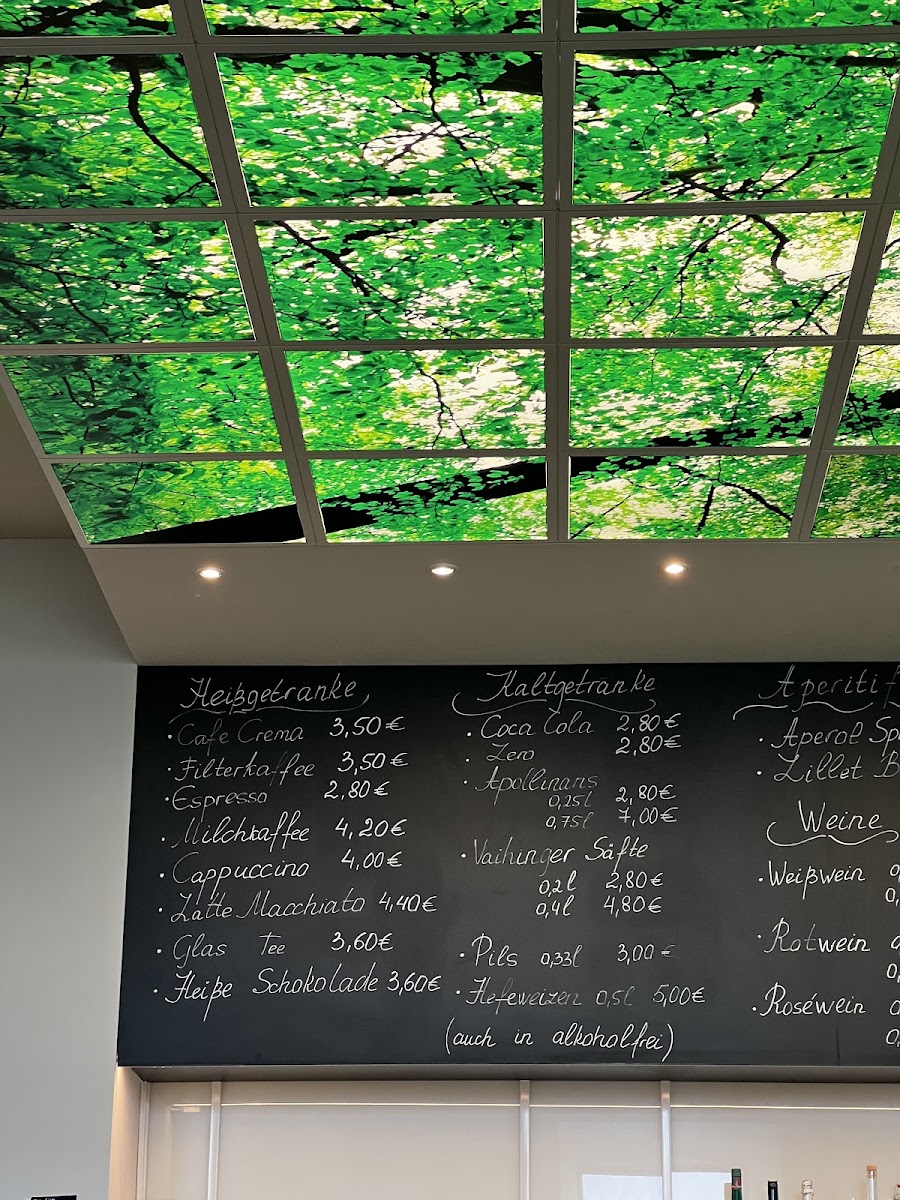 Heißgetränke
Cafe Crema 3,50€
Filterkaffee 3,50€
Espresso 2,80€
Milchkaffee 4,20€
Cappuccino 4,00€
Latte Macchiato 4,40€
Glas Tee 3,60€
Heiße Schokolade 3,60€
Kaltgetränke
Coca Cola 2,80€
Zero 2,80€
Apollinaris
0,25l 2,80€
0,75l 7,00€
Vaihinger Säfte
0,2l 2,80€
0,4l 4,80€
Pils 0,33l 3,00€
Hefeweizen 0,5l 5,00€
(auch in alkoholfrei)
Aperitif
Aperol Sp
Lillet B
Weine
Weißwein 0,
0,
Rotwein
0,
Roséwein
0,